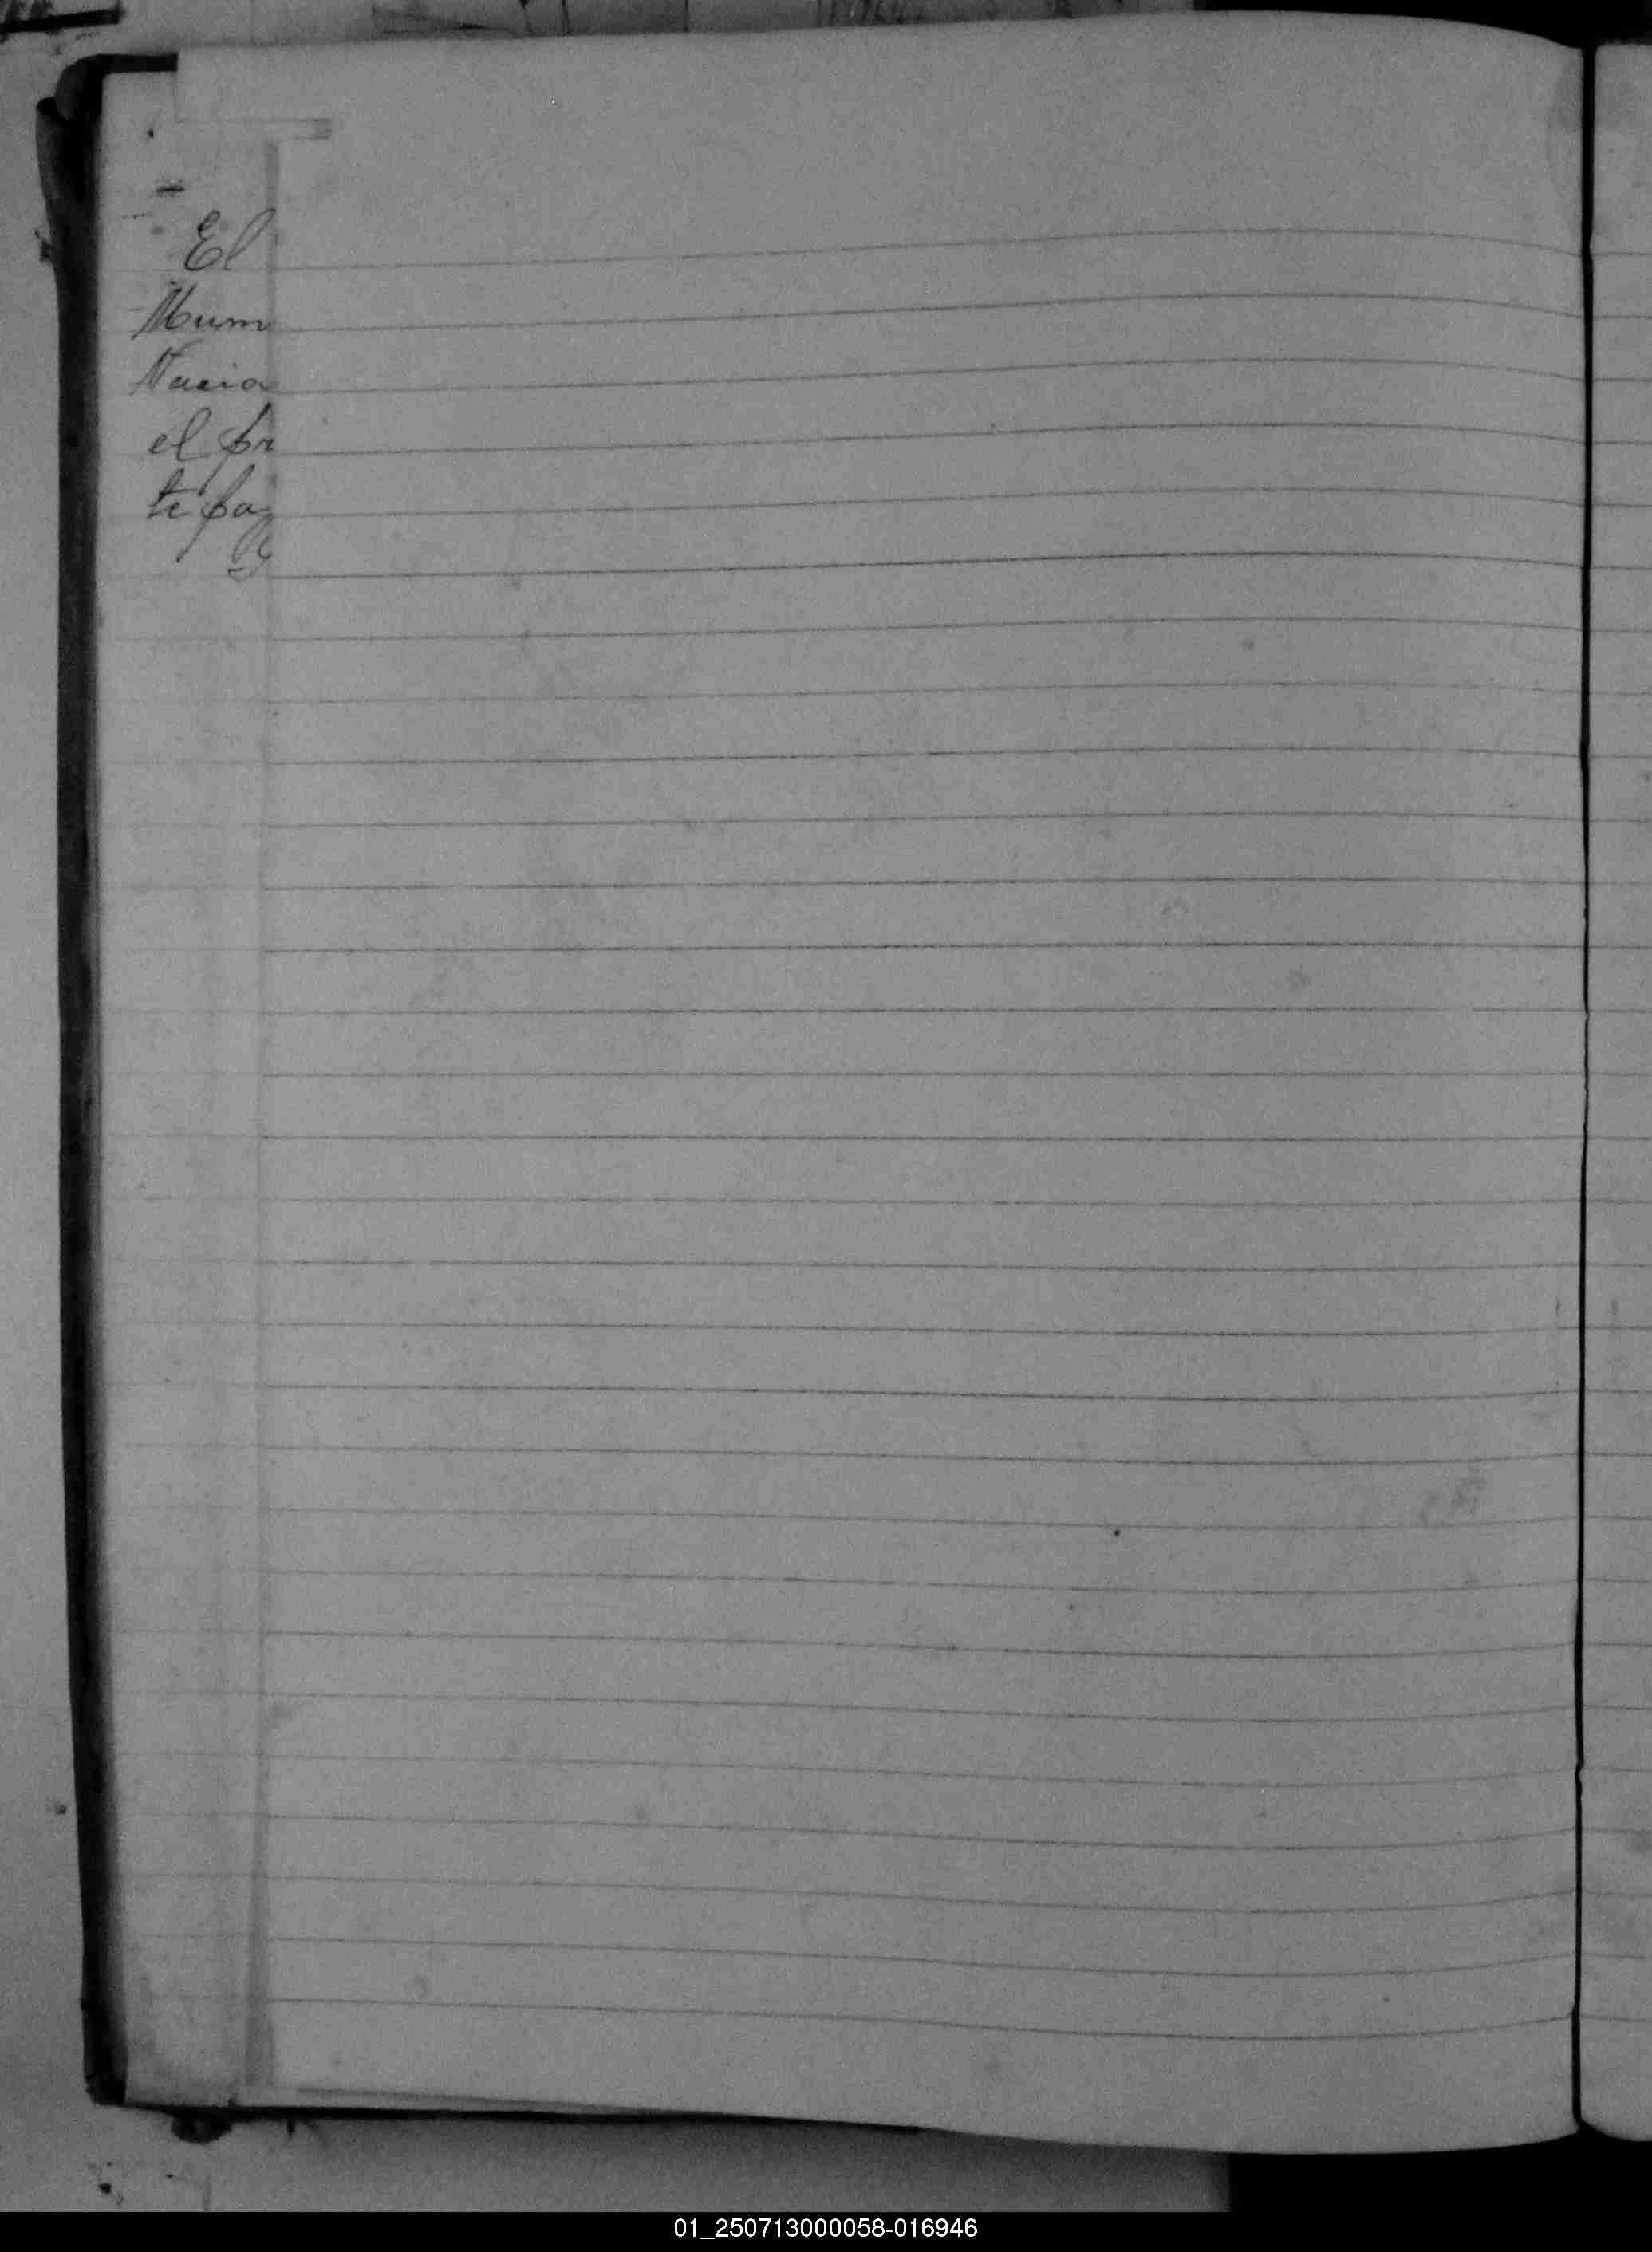 El
Mum
Nacia
el pr
te pag
01_250713000058-016946